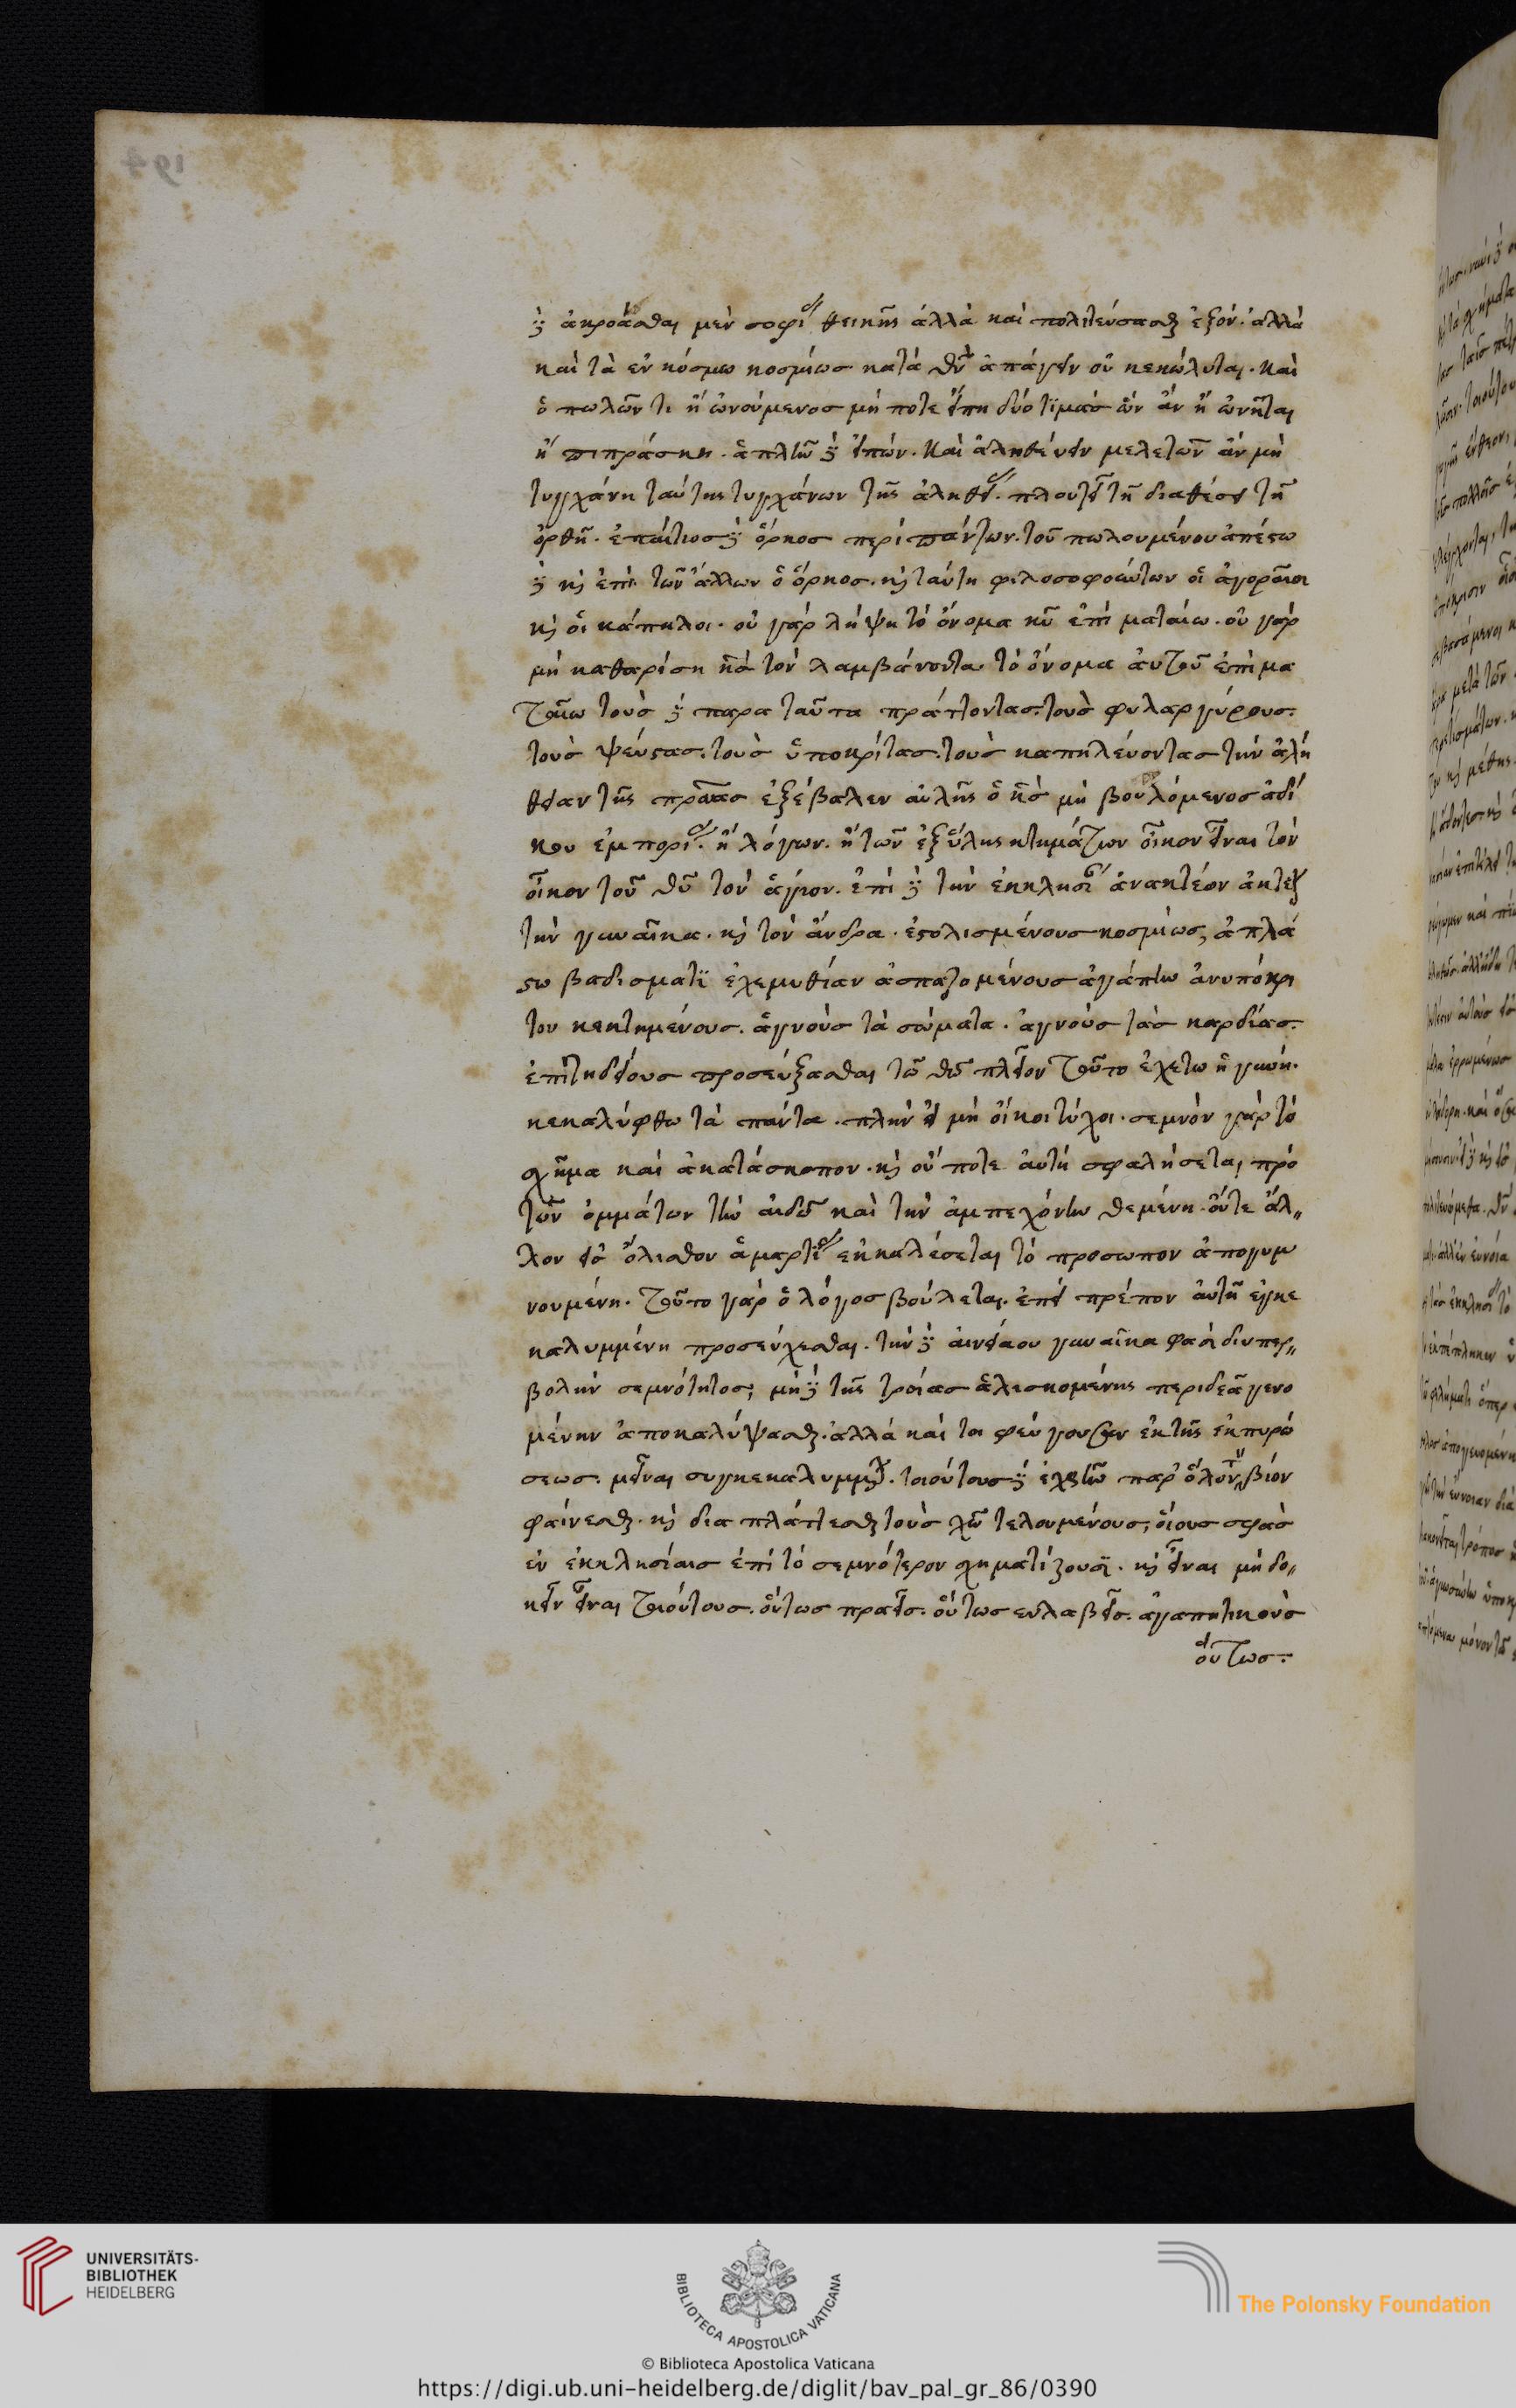 δὲ ἀκροᾶσθαι μὲν σοφίας θεικῆς ἀλλὰ καὶ πολιτεύσασθαι ἐξόν. ἀλλὰ
καὶ τὰ ἐν κόσμω κοσμίως κατὰ θν̄ ἀπάγειν οὐ κεκώλυται. καὶ
ὁ πωλῶν τι ἢ ὠνούμενος μή ποτε εἴπη δύο τϊμὰς ὧν ἂν ἢ ὠνῆται
ἢ πιπράσκη. ἁπλῶν δὲ εἰπών. καὶ ἀληθεύειν μελετῶν ἂν μὴ
τυγχάνη ταύτης τυγχάνων τῆς ἀληθείας. πλουτεῖ τῆ διαθέσει τῆ
ὀρθῆ. ἐπαίτιος δὲ ὅρκος περὶ πάντων. τοῦ πωλουμένου ἀπέστω
δὲ κὶ ἐπὶ τῶν ἄλλων ὁ ὅρκος. κὶ ταύτη φιλοσοφούντων οἱ ἀγοραῖοι
κὶ οἱ κάπηλοι. οὐ γὰρ λήψη τὸ ὄνομα κῡ ἐπὶ ματαίω. οὐ γὰρ
μὴ καθαρίση κ̄ς τὸν λαμβάνοντα τὸ ὄνομα ἀυτοῦ ἐπὶ μα
ταίω τοὺς δὲ παρα ταῦτα πράττοντας. τοὺς φυλαργύρους.
τοὺς ψεύστας. τοὺς ὑποκρίτας. τοὺς καπηλεύοντας τὴν ἀλή
θειαν τῆς πρώτας ἐξέβαλεν αὐλῆς ὁ κ̄ς μὴ βουλόμενος ἀδί
κου ἐμπορίας. ἢ λόγων. ἢ τῶν ἐξ ὕλης κτημάτων οἶκον εἶναι τὸν
οἶκον τοῦ θῡ τὸν ἅγιον. ἐπὶ δὲ τὴν ἐκκλησίαν ἀνακτέον ἀκτέον
τὴν γυναῖκα. κὶ τὸν ἄνδρα. ἐστολισμένους κοσμίως, ἀπλά
στω βαδισματϊ ἐχεμυθίαν ἀσπαζομένους ἀγάπην ἀνυπόκρι
τον κεκτημένους. ἁγνοὺς τὰ σώματα. ἁγνοὺς τὰς καρδίας.
ἐπιτηδείους προσεύξασθαι τῶ θω̄ πλεῖον τοῦτο ἐχέτω ἡ γυνή.
κεκαλύφθω τὰ πάντα. πλὴν εἰ μὴ οἴκοι τύχοι. σεμνὸν γὰρ τὸ
σχῆμα καὶ ἀκατάσκοπον. κὶ οὔ ποτε ἀυτὴ σφαλήσεται πρὸ
τῶν ὀμμάτων τὴν αἰδῶ καὶ τὴν ἀμπεχόνην θεμένη. οὔτε ἄλ„
λον εἰς ὄλισθον ἁμαρτίας ἐκκαλέσεται τὸ προσωπον ἀπογυμ
νουμένη. τοῦτο γὰρ ὁ λόγος βούλεται. ἐπεὶ πρέπον ἀυτῆ ἐγκε
καλυμμένη προσεύχεσθαι. τὴν δὲ αἰνείαου γυναῖκα φασὶ δι υπερ„
βολὴν σεμνότητος, μὴ δὲ τῆς τροίας ἁλισκομένης περιδεᾶ γενο
μένην ἀποκαλύψασθαι. ἀλλὰ καί τοι φεύγουσαν ἐκ τῆς ἐκπυρώ
σεως. μεῖναι συγκεκαλυμμένην. τοιούτους δὲ ἐχρῆν παρ' ὅλον τὸν βίον
φαίνεσθαι. κὶ δια πλάττεσθαι τοὺς χω̄ τελουμένους, οἵους σφας
ἐν ἐκκλησίαις ἐπὶ τὸ σεμνότερον σχηματίζουσϊ. κὶ εἶναι μὴ δο„
κεῖν εἶναι τοιούτους. οὕτως πραεῖς. οὕτως ευλαβεῖς. ἀγαπητικοὺς
οὕτως.
UNIVERSITÄTS-
BIBLIOTHEK
HEIDELBERG
BIBLIOTECA APOSTOLICA VATICANA
The Polonsky Foundation
© Biblioteca Apostolica Vaticana
https://digi.ub.uni-heidelberg.de/diglit/bav_pal_gr_86/0390